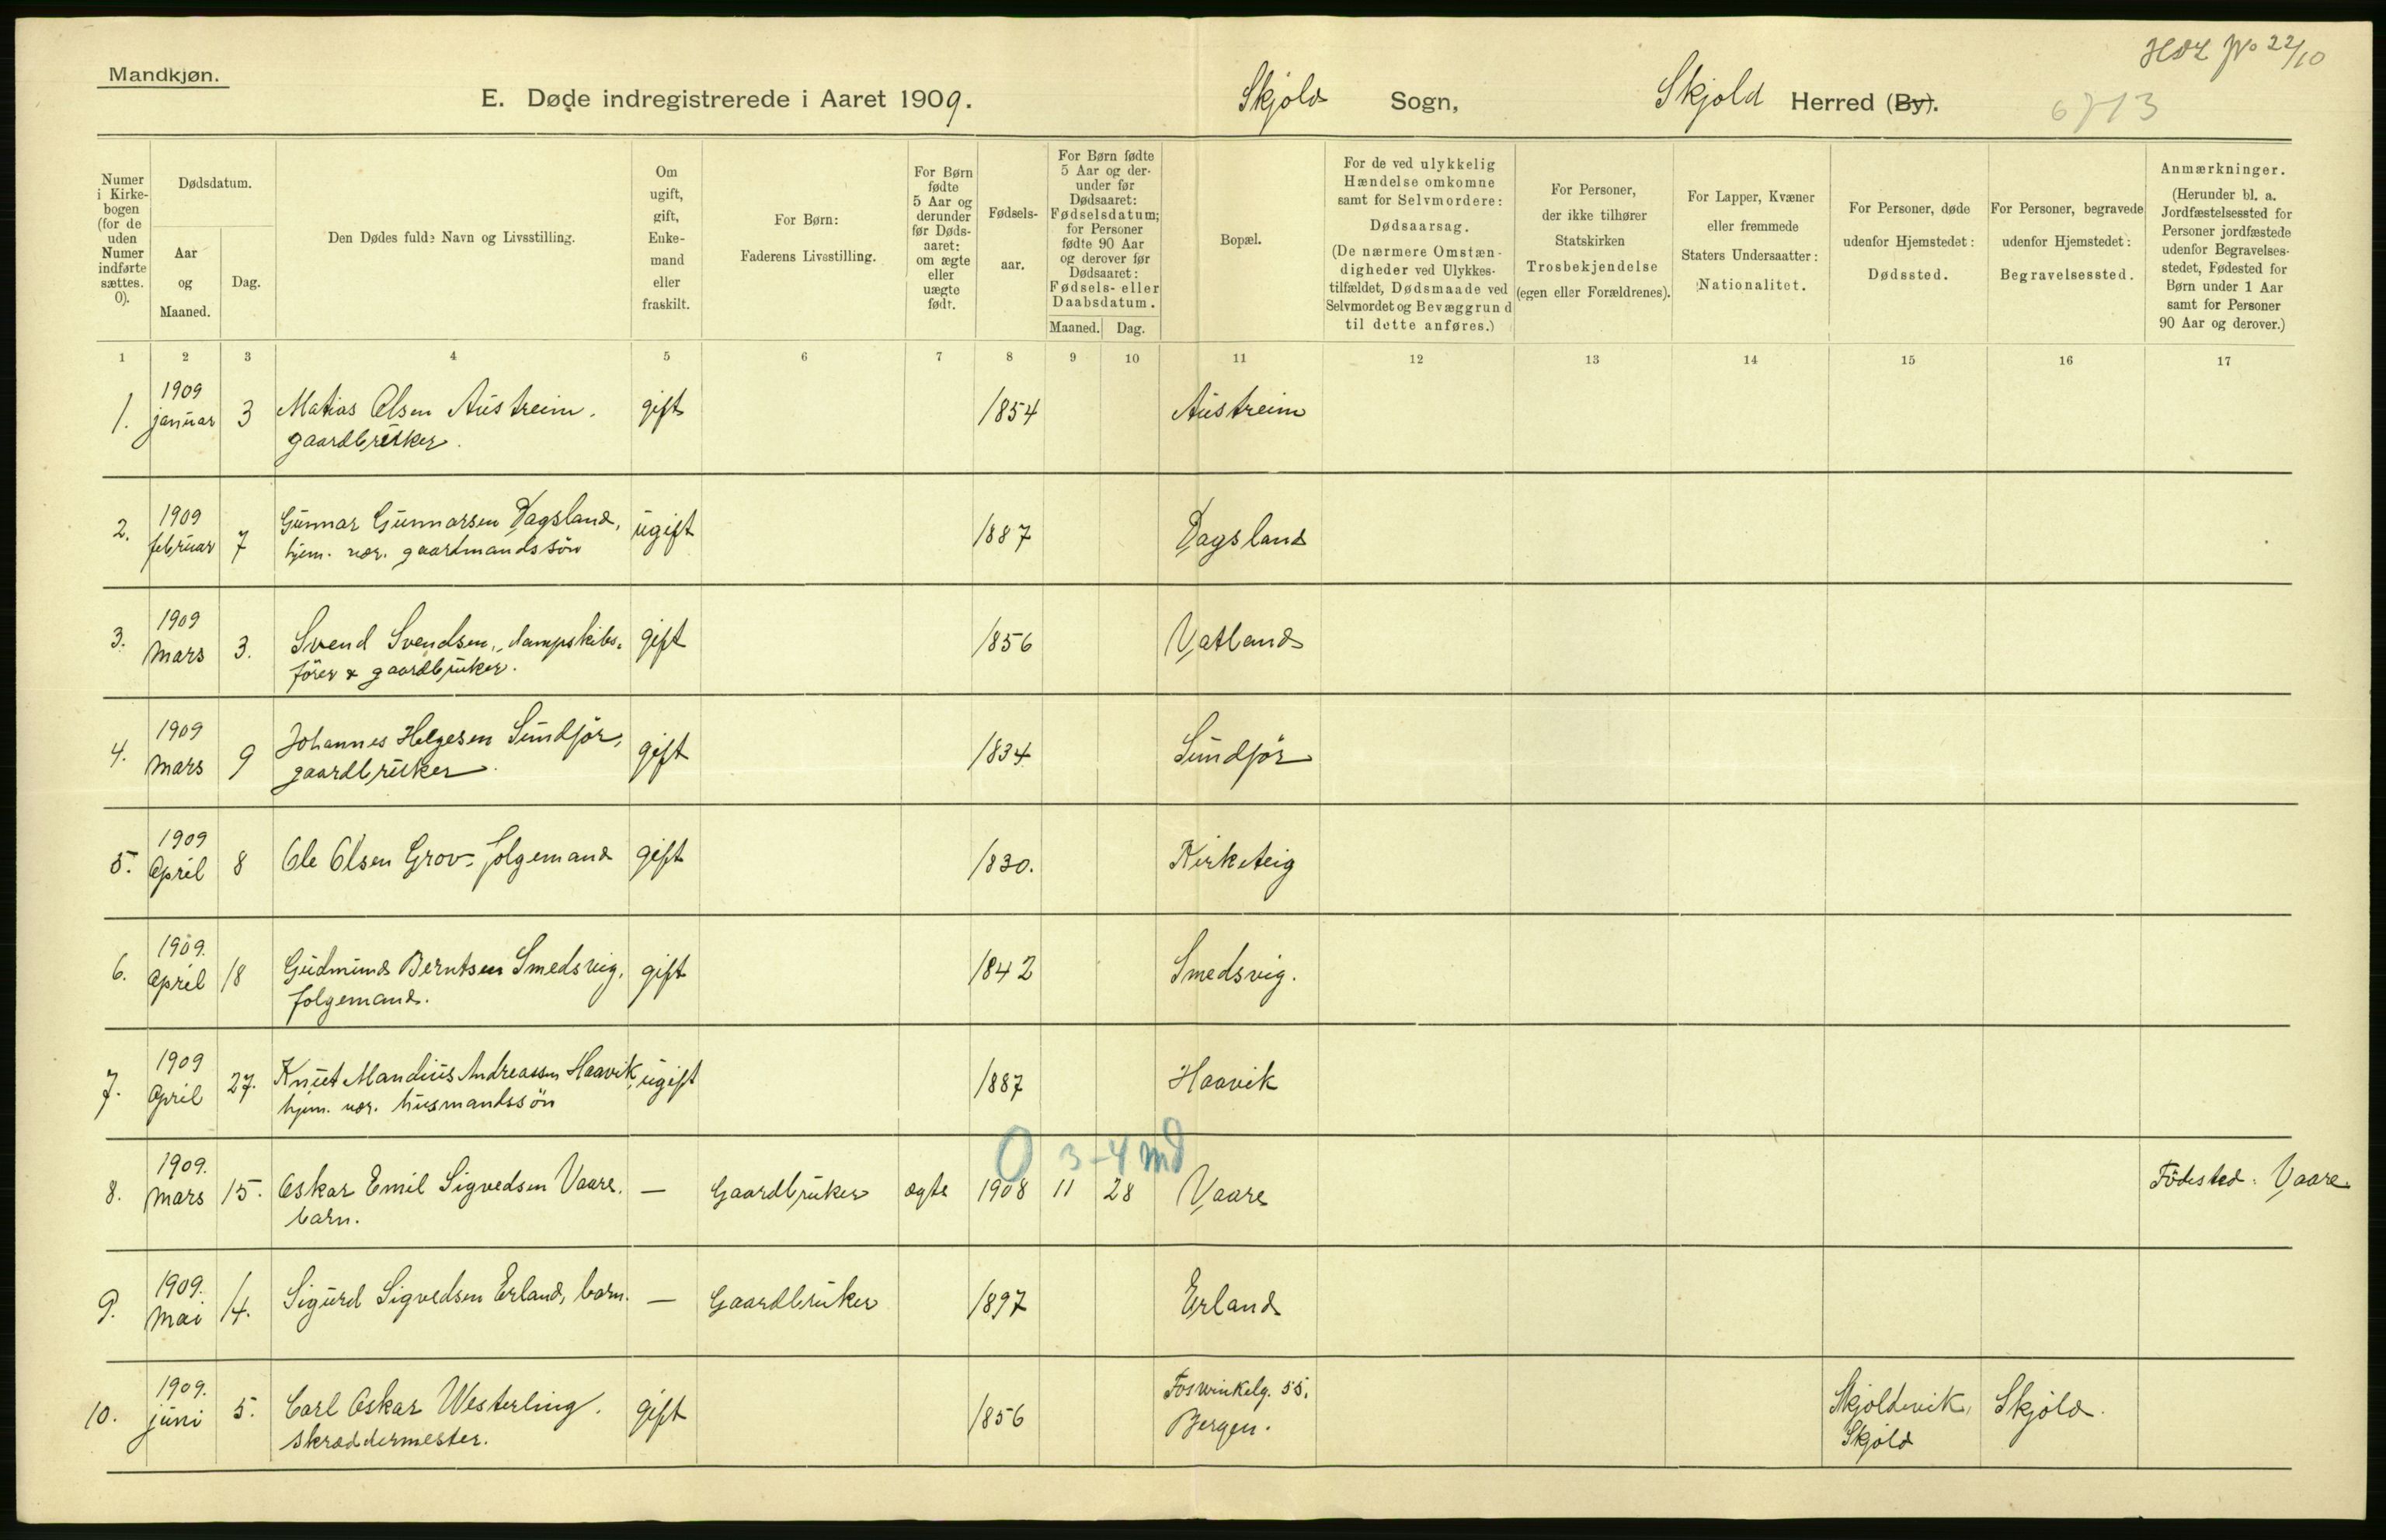 Mandkjøn.
E. Døde indregistrerede i Aaret 1909.
Skjold Sogn,
Skjold Herred (By).
No 22/10
Numer i Kirkebogen (for de uden Numer indførte sættes. 0).
Dødsdatum.
Aar og Maaned.
Dag.
Den Dødes fulde Navn og Livsstilling.
Om ugift, gift, Enkemand eller fraskilt.
For Børn: Faderens Livsstilling.
For Børn fødte 5 Aar og derunder før Dødsaaret: om ægte eller uægte født.
Fødselsaar.
For Børn fødte 5 Aar og derunder før Dødsaaret: Fødselsdatum; for Personer fødte 90 Aar og derover før Dødsaaret: Fødsels- eller Daabsdatum.
Maaned. Dag.
Bopæl.
For de ved ulykkelig Hændelse omkomne samt for Selvmordere: Dødsaarsag. (De nærmere Omstændigheder ved Ulykkestilfældet, Dødsmaade ved Selvmordet og Bevæggrund til dette anføres.)
For Personer, der ikke tilhører Statskirken Trosbekjendelse (egen eller Forældrenes).
For Lapper, Kvæner eller fremmede Staters Undersaatter: Nationalitet.
For Personer, døde udenfor Hjemstedet: Dødssted.
For Personer, begravede udenfor Hjemstedet: Begravelsessted.
Anmærkninger. (Herunder bl. a. Jordfæstelsessted for Personer jordfæstede udenfor Begravelsesstedet, Fødested for Børn under 1 Aar samt for Personer 90 Aar og derover.)
1 2 3 4 5 6 7 8 9 10 11 12 13 14 15 16 17
1. 1909 januar 3 Matias Olsen Austreim. gaardbruker. gift 1854 Austreim
2. 1909 februar 7 Gunnar Gunnarsen Dagsland, hjem. vær. gaardmandssön ugift 1887 Dagsland
3. 1909 Mars 3. Svend Svendsen, dampskibsförer & gaardbruker. gift 1856 Vatland
4. 1909 Mars 9 Johannes Helgesen Sundför, gaardbruker. gift 1834 Sundför
5. 1909 April 8 Ole Olsen Grov, folgemand gift 1830. Kirketeig
6. 1909. April 18 Gudmund Berntsen Smedsvig, folgemand. gift 1842 Smedsvig.
7. 1909 April 27. Knut Mandius Andreassen Haavik, hjem. vær. husmandssön ugift 1887 Haavik
0 3-4 md
8. 1909. Mars 15. Oskar Emil Sigvedsen Vaare. barn. — Gaardbruker ægte 1908 11 28 Vaare Födested: Vaare
9. 1909. Mai 14. Sigurd Sigvedsen Erland, barn. — Gaardbruker 1897 Erland
10. 1909. juni 5. Carl Oskar Westerling. skræddermester. gift 1856 Foswinkelg. 55. Bergen. Skjoldevik, Skjold Skjold.